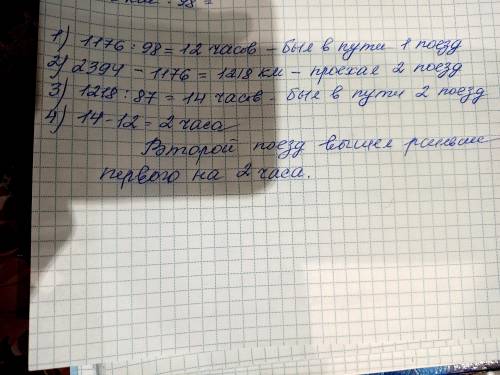 : 98 =
1) 1176 : 98 = 12 часов – был в пути 1 поезд
2) 2394 - 1176 = 1218 км – проехал 2 поезд
3) 1218 : 87 = 14 часов - был в пути 2 поезд
4) 14 - 12 = 2 часа
Второй поезд вышел раньше
первого на 2 часа.